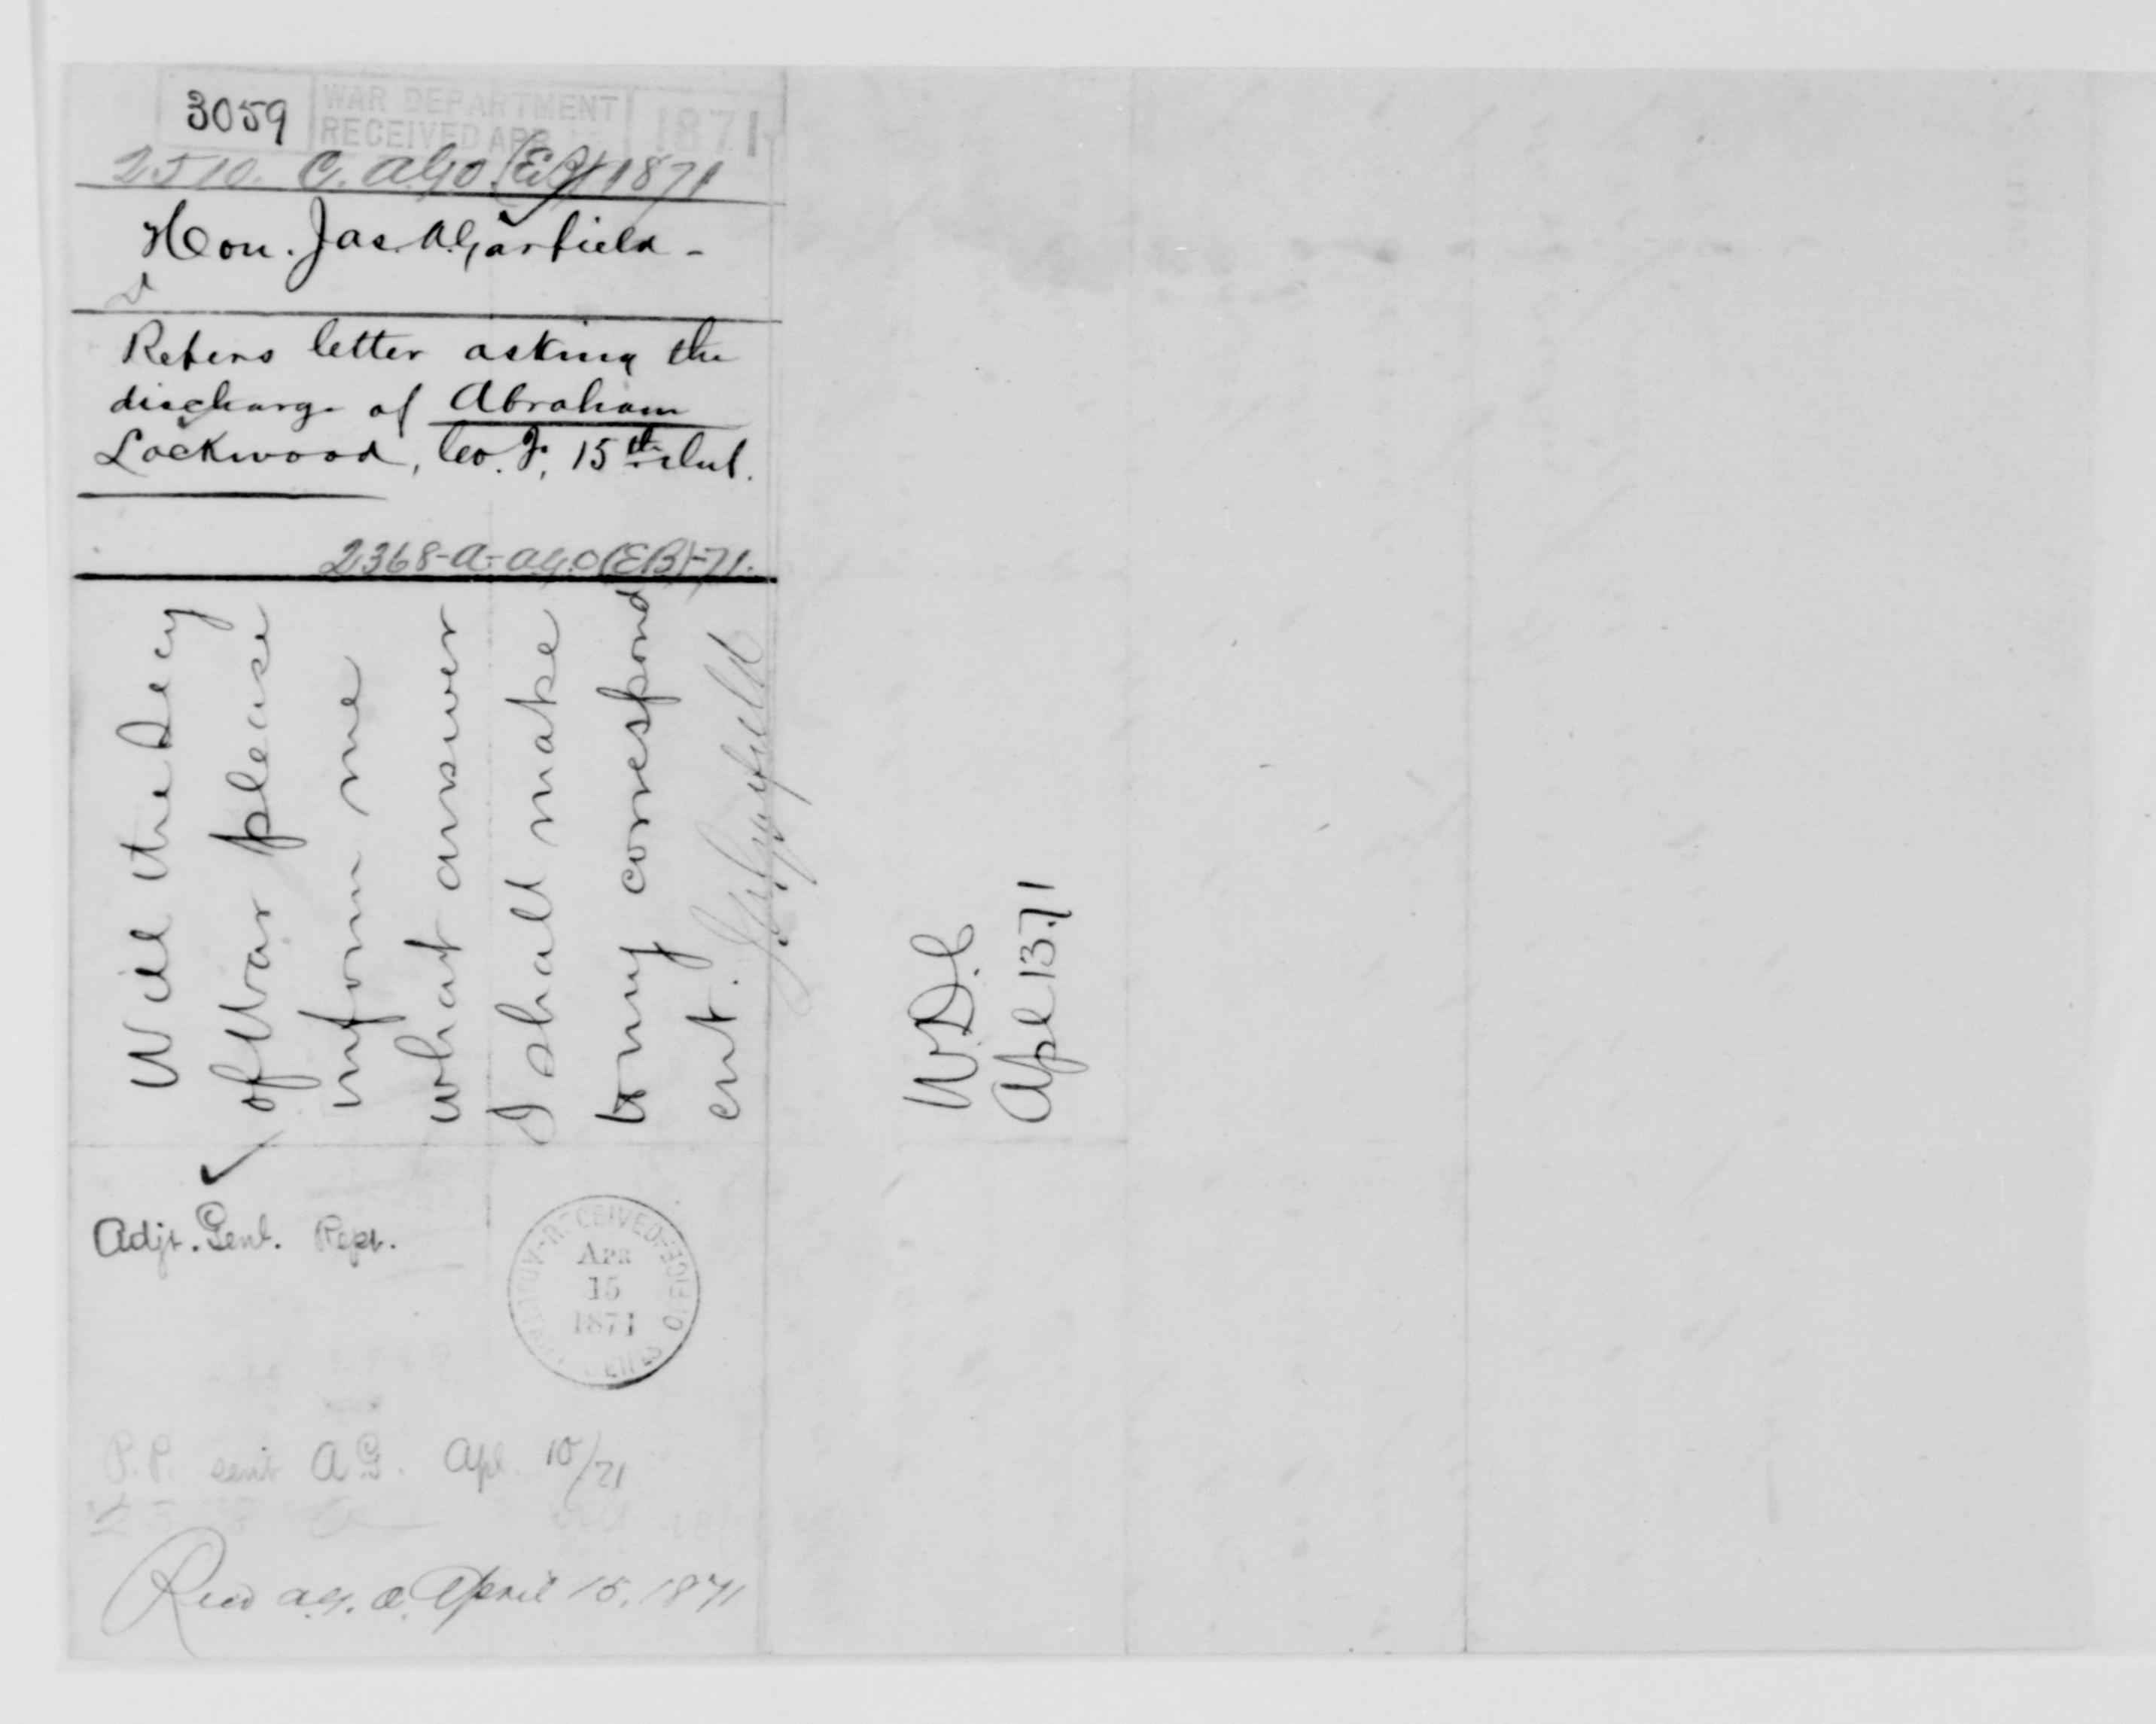 3059
WAR DEPARTMENT
RECEIVED APR
1871
2510. C. A.G.O. (EB) 1871
Hon. Jas. A. Garfield -
Refers letter asking the
discharge of Abraham
Lockwood, Co. F, 15th Inf.
2368-A-A.G.O(EB)-71.
Will the Secy
of War please
inform me
what answer
I shall make
to my correspond
ent.
J. A. Garfield
W.D.C
Apl 13.71
Adjt. Genl. Rept.
RECEIVED
ADJUTANT GENL'S OFFICE
APR
15
1871
P.P. sent A G. Apl 15/71
Recd A.G.O. April 15, 1871